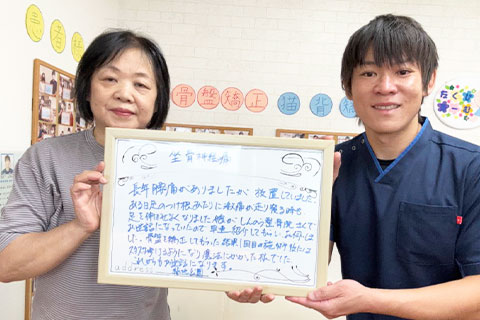 患者様
骨盤矯正
猫背
坐骨神経痛
長年腰痛がありましたが放置していました。
ある日足のつけ根あたりに激痛が走り寝る時も
足を伸ばせなくなりました。娘がしんのう整骨院さんで
お世話になっていたので早速紹介してもらい
骨盤を矯正してもらった結果1回目の施術後には
スタスタ歩けるようになり魔法にかかった様でした
これからもお世話になります。